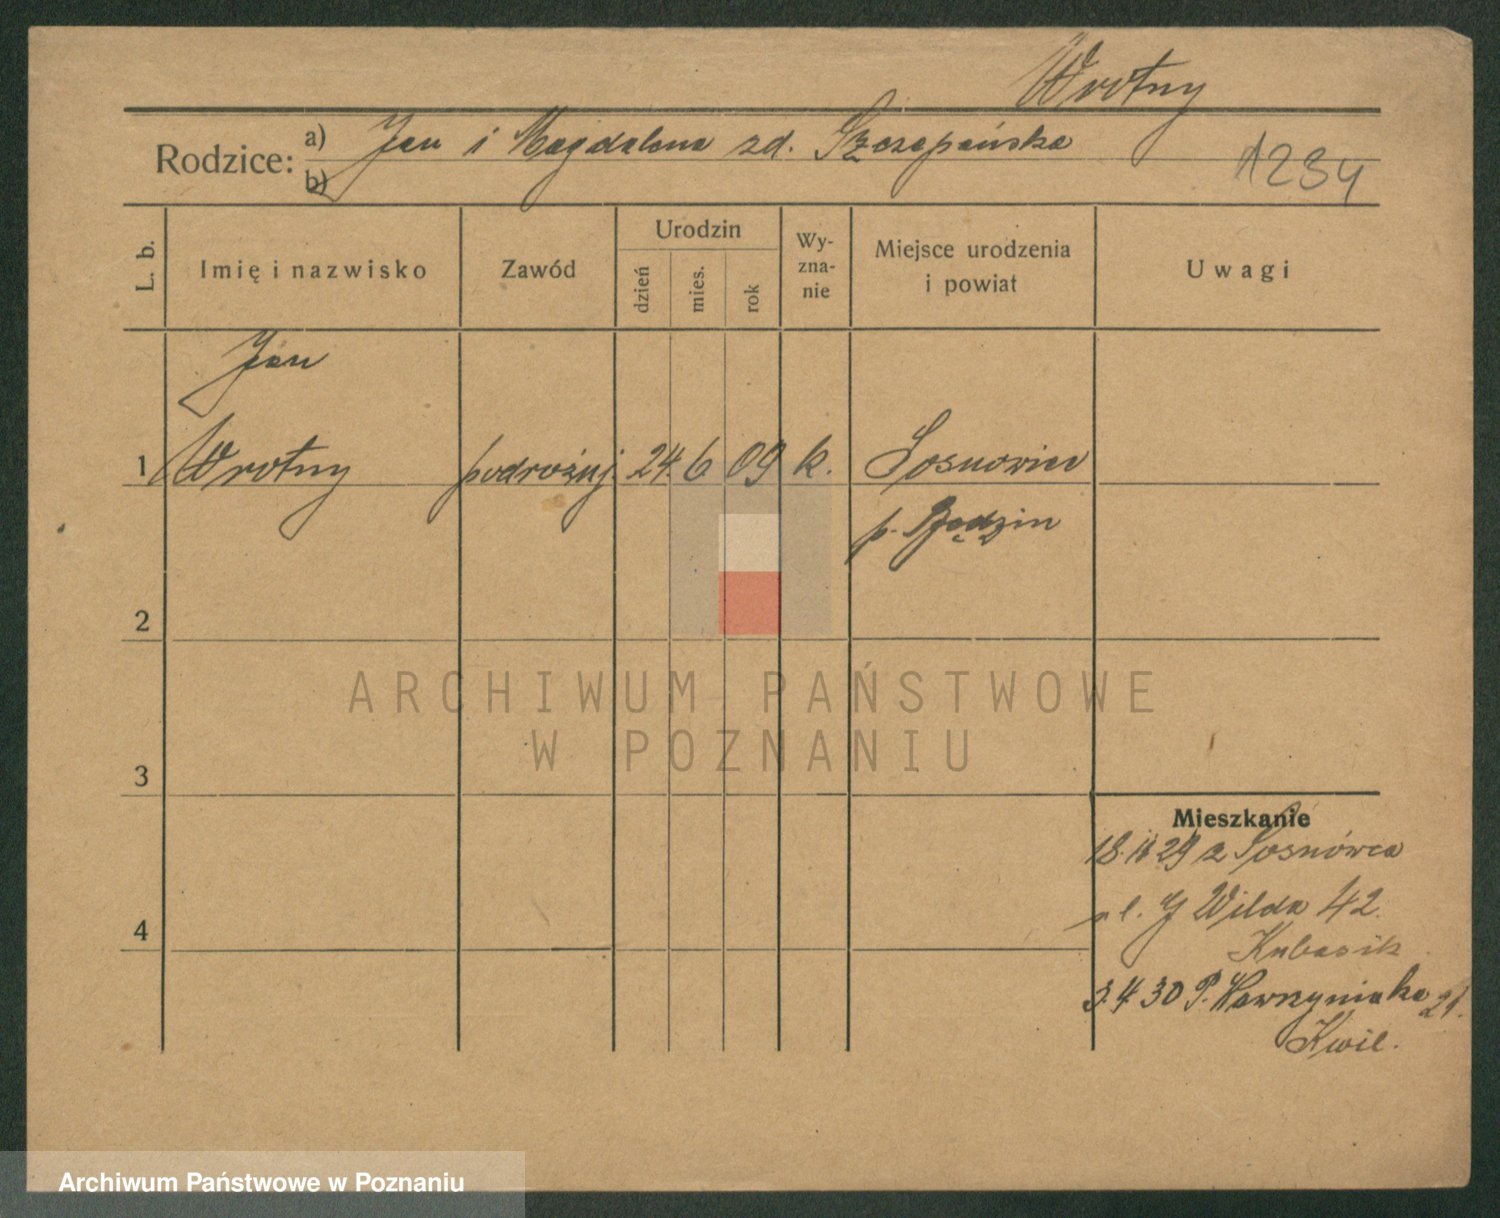 Wrotny
Rodzice: a) Jan i Magdalena zd. Szczepańska
b)
1234
L. b.
Imię i nazwisko
Zawód
Urodzin
dzień
mies.
rok
Wy-
zna-
nie
Miejsce urodzenia
i powiat
Uwagi
Jan
1 Wrotny podróżuj. 24. 6 09 k. Sosnowiec
p. Będzin
2
ARCHIWUM PAŃSTWOWE
W POZNANIU
3
Mieszkanie
18. 11 29 z Sosnówca
G Wilda 42.
4
Kubasik
3. 4 30 P. Wawrzyniaka 21.
Kwil.
Archiwum Państwowe w Poznaniu